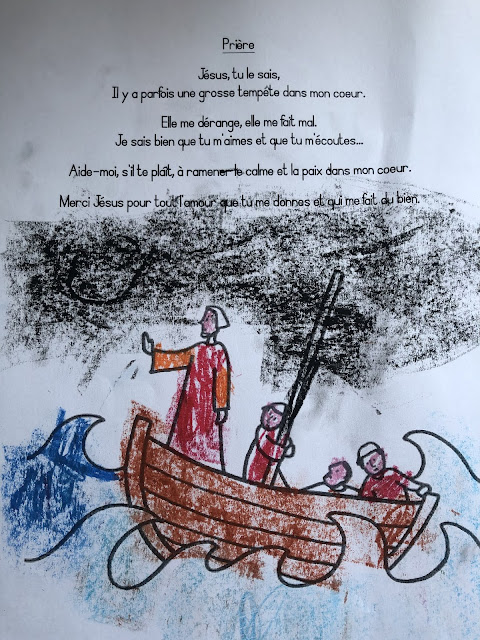 Prière
Jésus, tu le sais,
Il y a parfois une grosse tempête dans mon coeur.
Elle me dérange, elle me fait mal.
Je sais bien que tu m'aimes et que tu m'écoutes...
Aide-moi, s'il te plaît, à ramener le calme et la paix dans mon coeur.
Merci Jésus pour tout l'amour que tu me donnes et qui me fait du bien.